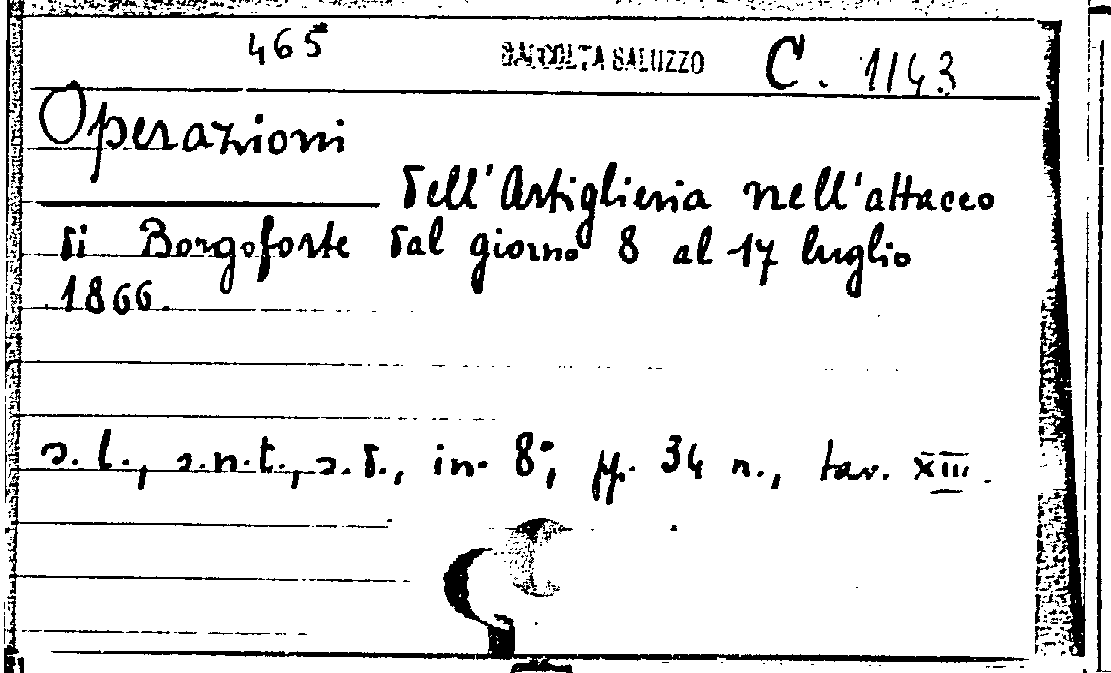 465 RACCOLTA SALUZZO C. 1143
Operazioni
dell'Artiglieria nell'attacco
di Borgoforte dal giorno 8 al 17 luglio
1866.
s.l., s.n.t., s.d., in- 8°, pp. 34 n., tav. XIII.